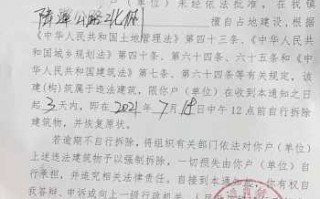 户（单位）未经依法批准，在我镇
陆渾公路北侧 擅自占地建设，根据
《中华人民共和国土地管理法》第四十三条、《中华人民
共和国城乡规划法》第四十条、第六十四条、第六十六条和
《中华人民共和国建筑法》第七条、第六十四条等有关规定，该
建（构）筑属于违法建筑，限你户（单位）在收到本通知之日
起3天内，即在2021年7月18日中午12点前自行拆除
建筑物，并恢复原状。
若逾期不自行拆除，将组织有关部门依法对你户（单位）
上述违法建筑物予以强制拆除，一切损失由你户（单位）自
行承担，并追究相关法律责任，自接到本通知，你有权自
我答辩、申诉或向上一级行政机关、人民